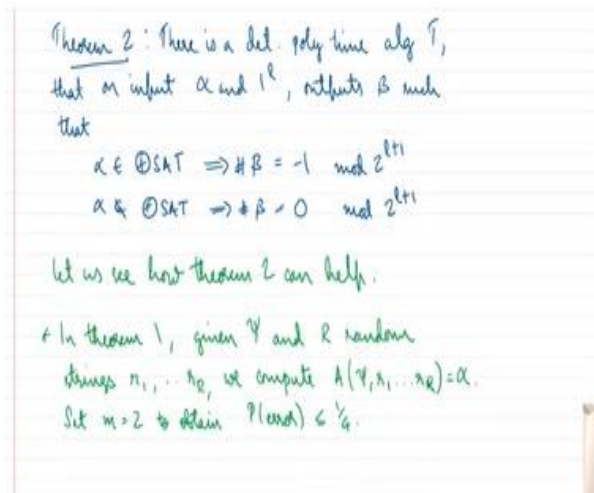 Theorem 2 : There is a det. poly time alg T,
that on input α and 1^ℓ, outputs β such
that
α ∈ ⊕SAT ⇒ #β = -1 mod 2^{ℓ+1}
α ∉ ⊕SAT ⇒ #β = 0 mod 2^{ℓ+1}
Let us see how theorem 2 can help.
* In theorem 1, given Ψ and R random
strings r_1, .. r_R, we compute A(Ψ, r_1 ... r_R) = α.
Set m = 2 to obtain P(error) ≤ 1/4.